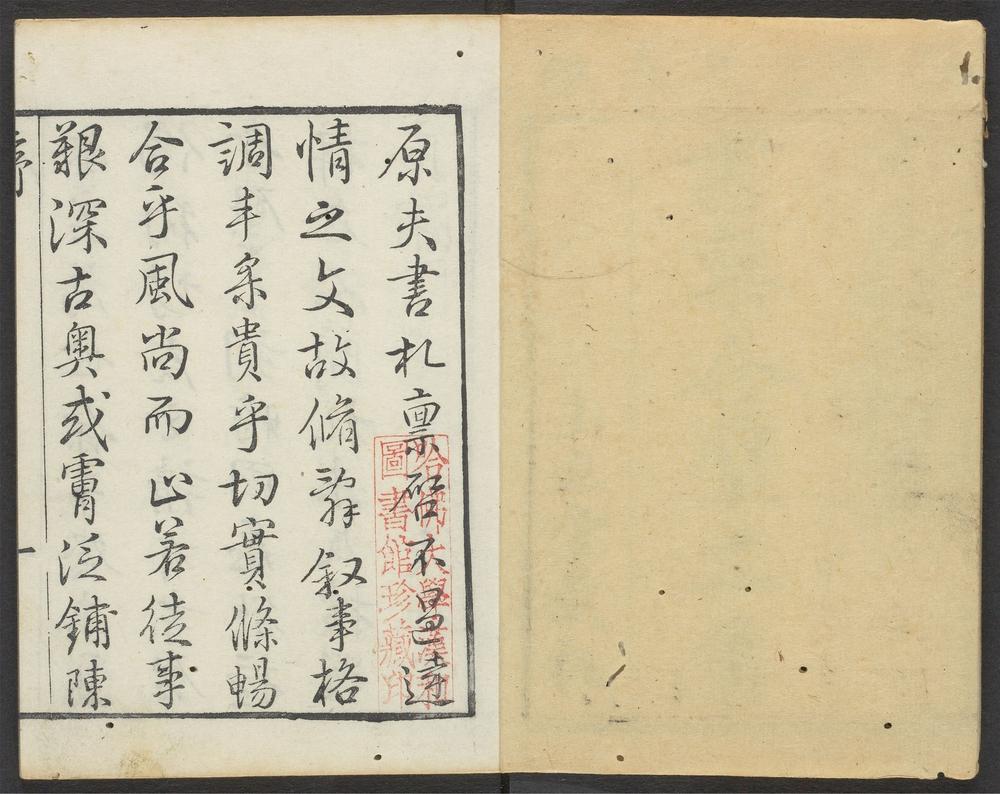 原夫書札稟啓不過達
情之文故脩辭叙事格
調丰采貴乎切實條暢
合乎風尚而止若徒事
艱深古奥或膚泛鋪陳
序
一
哈佛大學漢和
圖書館珍藏印